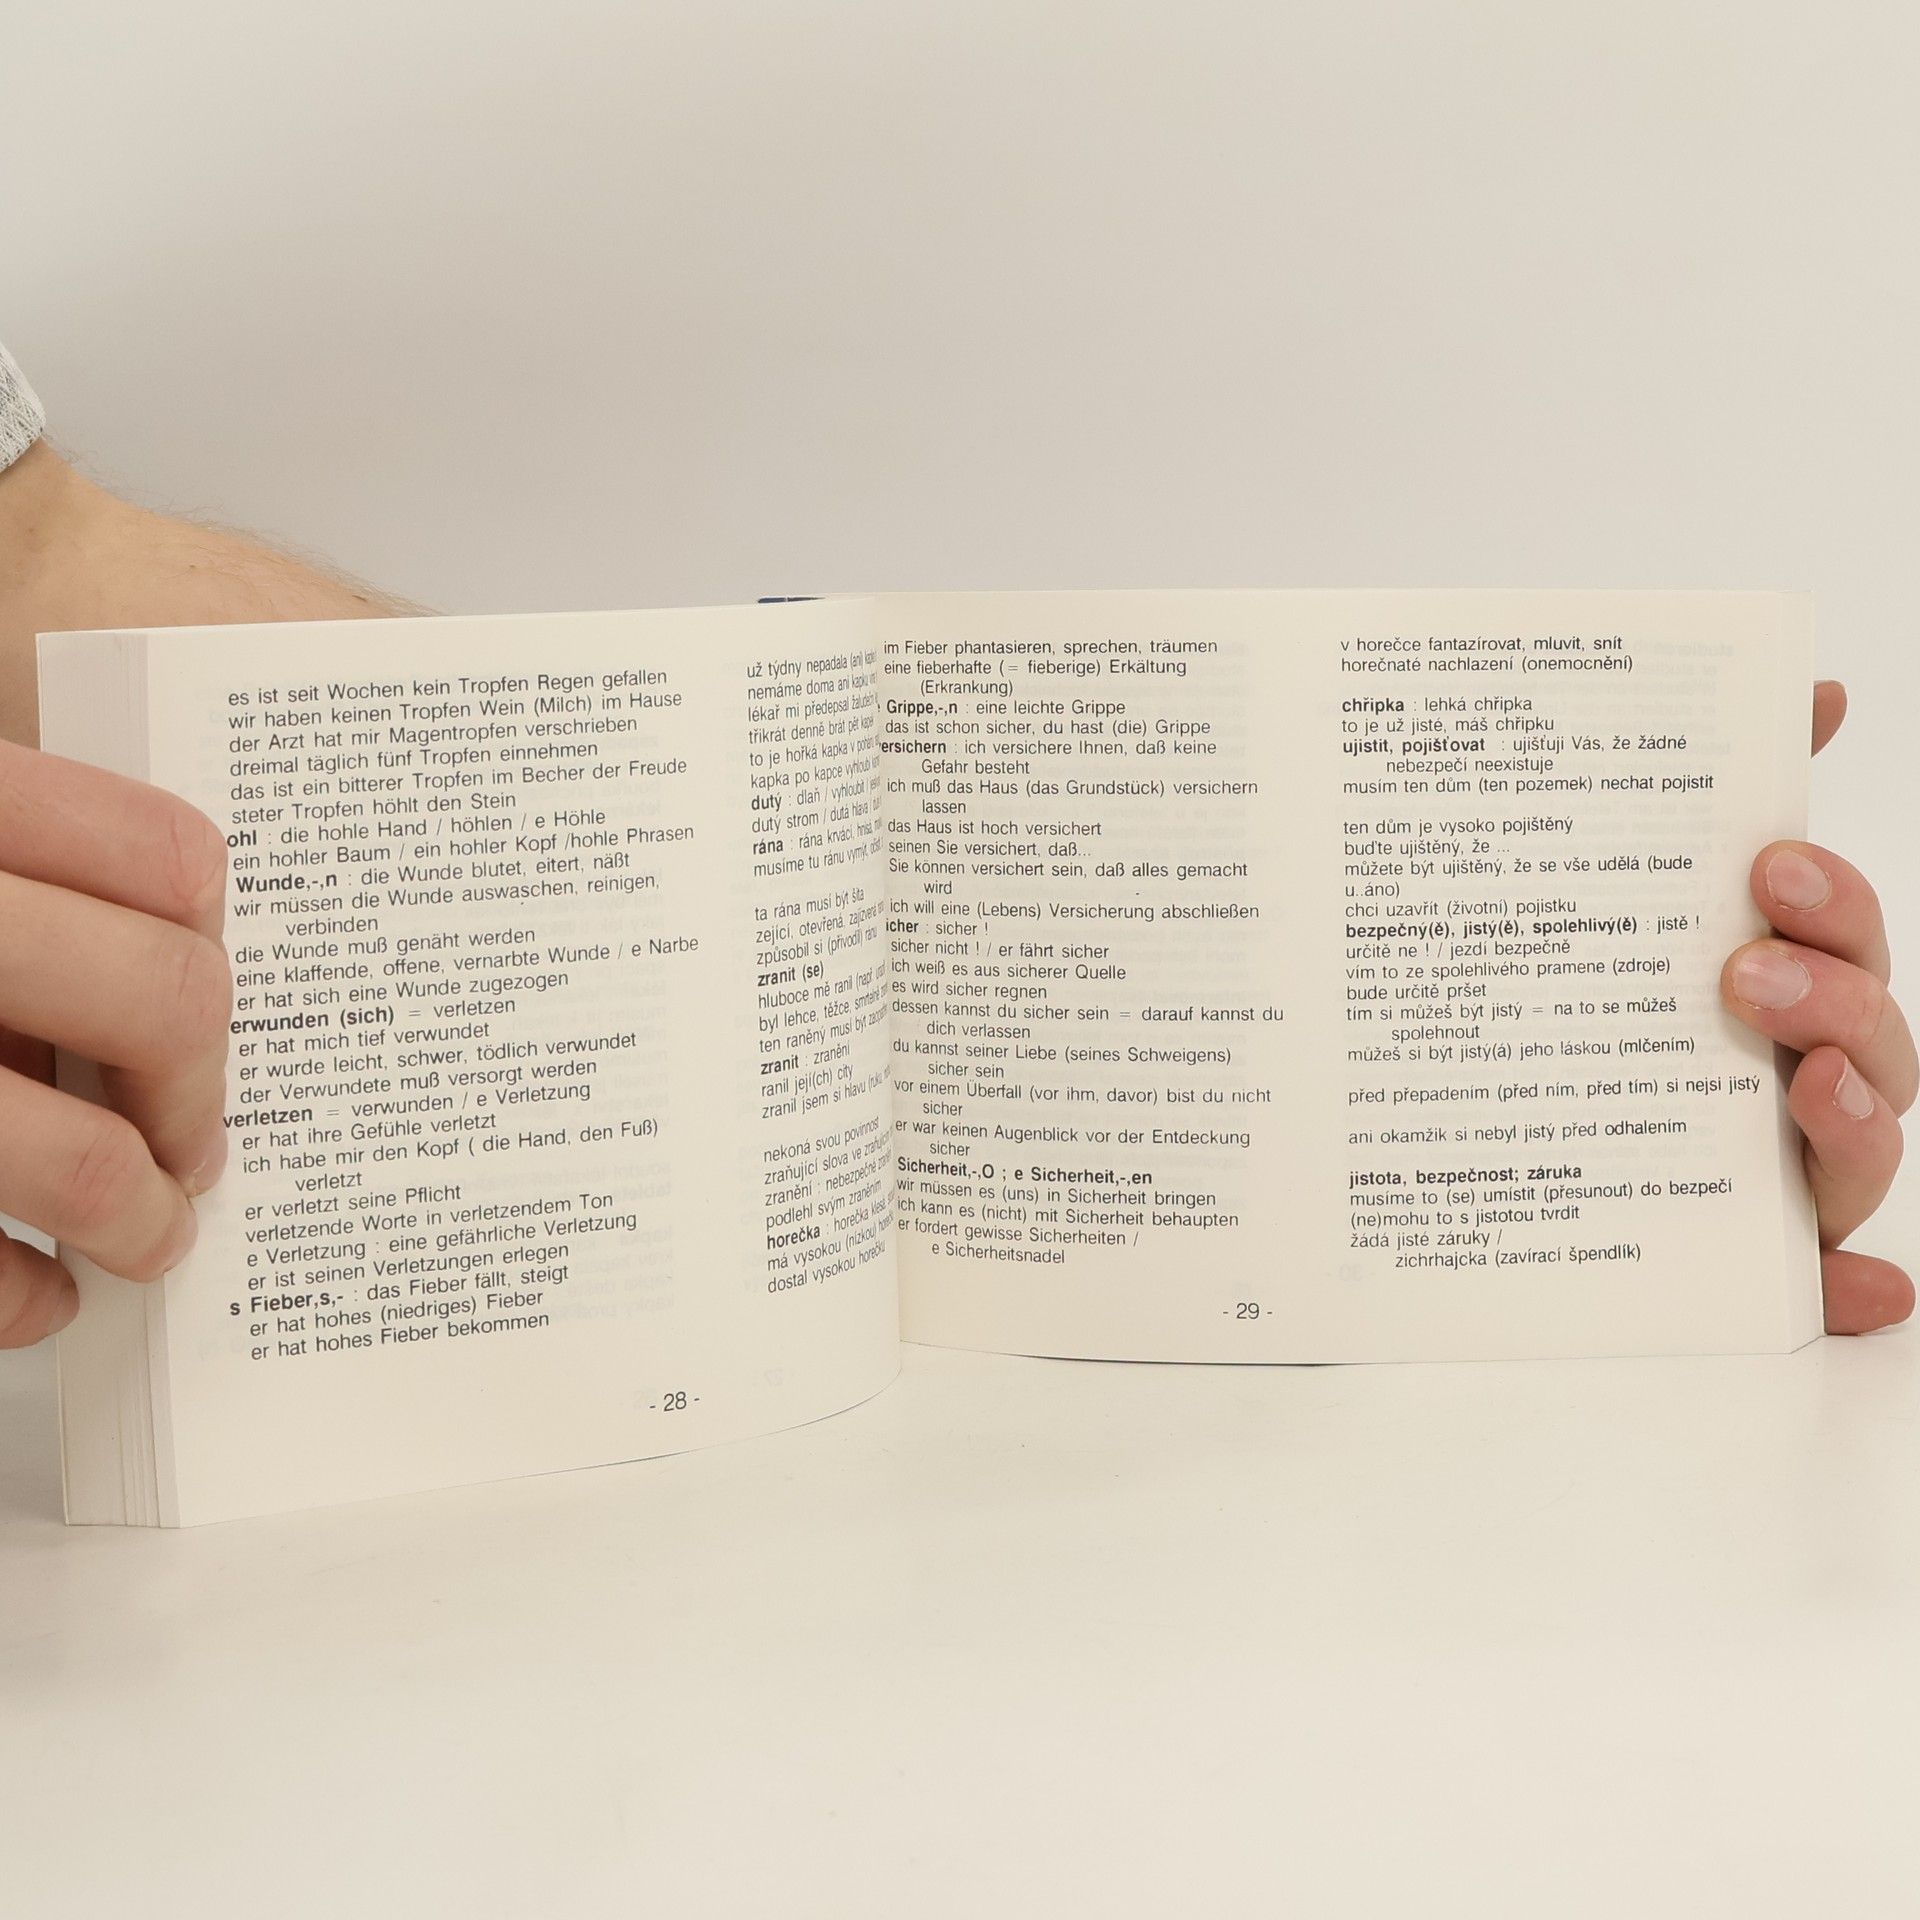 es ist seit Wochen kein Tropfen Regen gefallen
wir haben keinen Tropfen Wein (Milch) im Hause
der Arzt hat mir Magentropfen verschrieben
dreimal täglich fünf Tropfen einnehmen
das ist ein bitterer Tropfen im Becher der Freude
steter Tropfen höhlt den Stein
ohl : die hohle Hand / höhlen / e Höhle
ein hohler Baum / ein hohler Kopf /hohle Phrasen
Wunde,-,n : die Wunde blutet, eitert, näßt
wir müssen die Wunde auswaschen, reinigen,
verbinden
die Wunde muß genäht werden
eine klaffende, offene, vernarbte Wunde / e Narbe
er hat sich eine Wunde zugezogen
erwunden (sich) = verletzen
er hat mich tief verwundet
er wurde leicht, schwer, tödlich verwundet
der Verwundete muß versorgt werden
verletzen = verwunden / e Verletzung
er hat ihre Gefühle verletzt
ich habe mir den Kopf ( die Hand, den Fuß)
verletzt
er verletzt seine Pflicht
verletzende Worte in verletzendem Ton
e Verletzung : eine gefährliche Verletzung
er ist seinen Verletzungen erlegen
s Fieber,s,- : das Fieber fällt, steigt
er hat hohes (niedriges) Fieber
er hat hohes Fieber bekommen
už týdny nepadala (ani)
nemáme doma ani kapku
lékař mi předepsal
třikrát denně brát pět kapek
to je hořká kapka v
kapka po kapce vyhloubí
dutý : dlaň / vyhloubit /
dutý strom / dutá hlava /
rána : rána krvácí, hnisá,
musíme tu ránu vymýt,
ta rána musí být šita
zející, otevřená, zajizvená
způsobil si (přivodil) ránu
zranit (se)
hluboce mě ranil (např.
byl lehce, těžce, smrtelně
ten raněný musí být
zranit : zranění
ranil její(ch) city
zranil jsem si hlavu (ruku,
nekoná svou povinnost
zraňující slova ve zraňujícím
zranění : nebezpečné zranění
podlehl svým zraněním
horečka : horečka klesá,
má vysokou (nízkou)
dostal vysokou horečku
- 28 -
im Fieber phantasieren, sprechen, träumen
eine fieberhafte ( = fieberige) Erkältung
(Erkrankung)
Grippe,-,n : eine leichte Grippe
das ist schon sicher, du hast (die) Grippe
ersichern : ich versichere Ihnen, daß keine
Gefahr besteht
ich muß das Haus (das Grundstück) versichern
lassen
das Haus ist hoch versichert
seinen Sie versichert, daß...
Sie können versichert sein, daß alles gemacht
wird
ich will eine (Lebens) Versicherung abschließen
icher : sicher !
sicher nicht ! / er fährt sicher
ich weiß es aus sicherer Quelle
es wird sicher regnen
dessen kannst du sicher sein = darauf kannst du
dich verlassen
du kannst seiner Liebe (seines Schweigens)
sicher sein
vor einem Überfall (vor ihm, davor) bist du nicht
sicher
er war keinen Augenblick vor der Entdeckung
sicher
Sicherheit,-,O ; e Sicherheit,-,en
wir müssen es (uns) in Sicherheit bringen
ich kann es (nicht) mit Sicherheit behaupten
er fordert gewisse Sicherheiten /
e Sicherheitsnadel
v horečce fantazírovat, mluvit, snít
horečnaté nachlazení (onemocnění)
chřipka : lehká chřipka
to je už jisté, máš chřipku
ujistit, pojišťovat : ujišťuji Vás, že žádné
nebezpečí neexistuje
musím ten dům (ten pozemek) nechat pojistit
ten dům je vysoko pojištěný
buďte ujištěný, že ...
můžete být ujištěný, že se vše udělá (bude
u..áno)
chci uzavřít (životní) pojistku
bezpečný(ě), jistý(ě), spolehlivý(ě) : jistě !
určitě ne ! / jezdí bezpečně
vím to ze spolehlivého pramene (zdroje)
bude určitě pršet
tím si můžeš být jistý = na to se můžeš
spolehnout
můžeš si být jistý(á) jeho láskou (mlčením)
před přepadením (před ním, před tím) si nejsi jistý
ani okamžik si nebyl jistý před odhalením
jistota, bezpečnost; záruka
musíme to (se) umístit (přesunout) do bezpečí
(ne)mohu to s jistotou tvrdit
žádá jisté záruky /
zichrhajcka (zavírací špendlík)
- 29 -